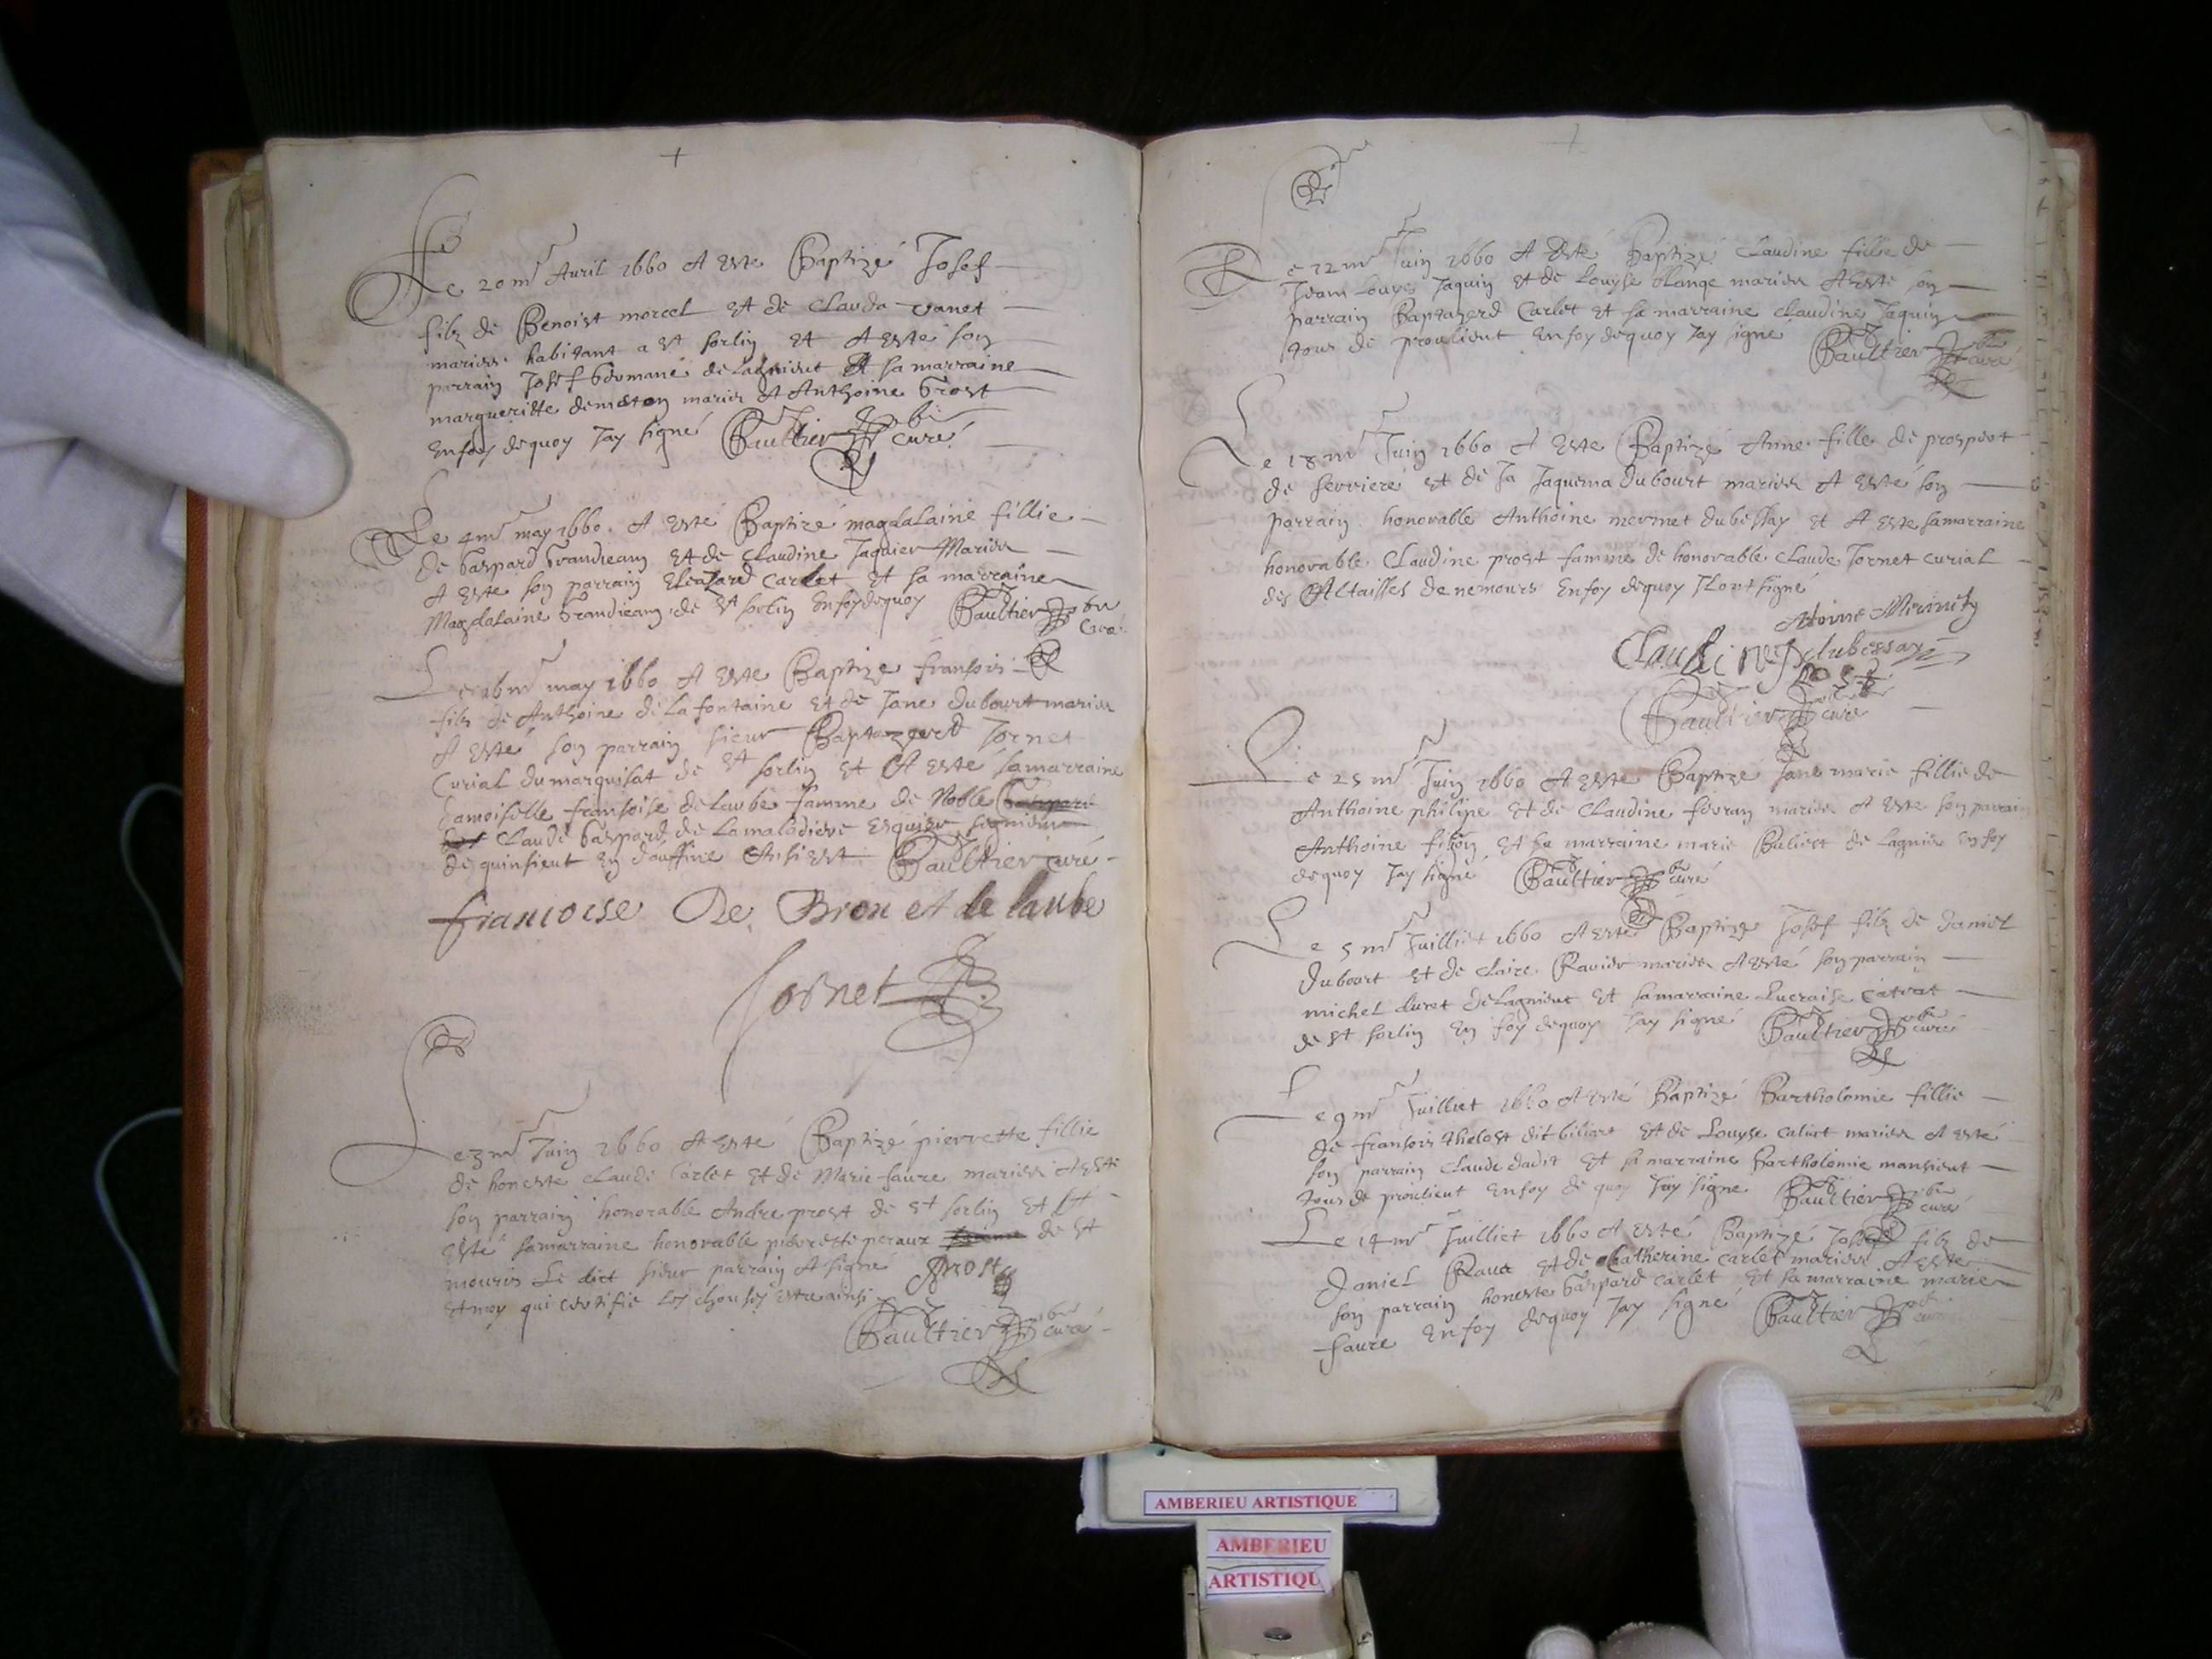 Le 20me Auril 1660 A este Baptizé Josef
filz de Benoist morcel et de Clauda vanet
mariers habitant a st sorlin et A este son
parrain Josef Germane de Lagnieut et sa marraine
margueritte demeton marier A Anthoine Grost
En foy dequoy Jay signé Gaultier pbre curé
Le 4me may 1660 A esté Baptizé magdalaine fillie
de Gaspard Grandieam et de Claudine Jaquier Mariers
A este son parrain Eleazard Carlet et sa marraine
Magdalaine Grandieam de st sorlin En foy dequoy Gaultier pbre Curé
Le 16me may 1660 A este Baptize fransois
filz de Anthoine de La fontaine et de Jane Dubourt mariers
A esté son parrain sieur Baptazard Jornet
Curial du marquisat de st sorlin et A esté sa marraine
damoiselle fransoise de laube famme de Noble
Claude Gaspard de La maladiere Esquier segnieur
de quinsieut en dauffine Ainsi est Gaultier curé
francoise De Brion et de laube
Jornet
Le 3me Juin 1660 A esté Baptizé pierrette fillie
de honeste Claude Carlet et de Marie faure mariers A esté
son parrain honorable Andre prost de st sorlin et A
esté sa marraine honorable pierrette peraux de st
mouris Le dict sieur parrain A signé Prost
Et moy qui certifie Les chouses estre ainsi
Gaultier pbre curé
Le 12me Juin 1660 A Esté Baptizé Claudine fillie de
Jean Louys Jaquin et de Louyse blange mariers A esté son
parrain Baptazard Carlet et sa marraine Claudine Jaquin
tous de proulieut En foy dequoy Jay signé Gaultier pbre curé
Le 18me Juin 1660 A este Baptizé Anne fille de prospert
de serriere et de Ja Jaquema Dubourt mariers A esté son
parrain honorable Anthoine mermet dubessay et A este sa marraine
honorable Claudine prost famme de honorable Claude Jornet curial
des Altaisses de nemours En foy dequoy Ilont signé
dubessay
Claudine Prost
Gaultier pbre curé
Le 25me Juin 1660 A este Baptizé Jane marie fillie de
Anthoine philipe et de Claudine feuran mariers A este son parrain
Anthoine filion et sa marraine marie Buliert de Lagnieu En foy
dequoy Jay signé Gaultier pbre curé
Le 5me Juilliet 1660 A esté Baptize Josef filz de daniel
Dubourt et de Claire Rauier mariers A esté son parrain
michel duret de Lagnieut et sa marraine Lucraise Catrat
de st sorlin En foy dequoy Jay signé Gaultier pbre curé
Le 9me Juilliet 1660 A esté Baptizé Bartholomie fillie
de fransois thelost dit biliart et de Louyse Caliet mariers A esté
son parrain Claude dadit et sa marraine Bartholomie mansieut
tous de proulieut En foy de quoy Jay signe Gaultier pbre curé
Le 14me Juilliet 1660 A esté Baptizé Josef filz de
Daniel Raux et de Catherine Carlet mariers A este
son parrain honeste Gaspard Carlet et sa marraine marie
faure En foy dequoy Jay signé Gaultier pbre curé
AMBERIEU ARTISTIQUE
AMBERIEU
ARTISTIQU